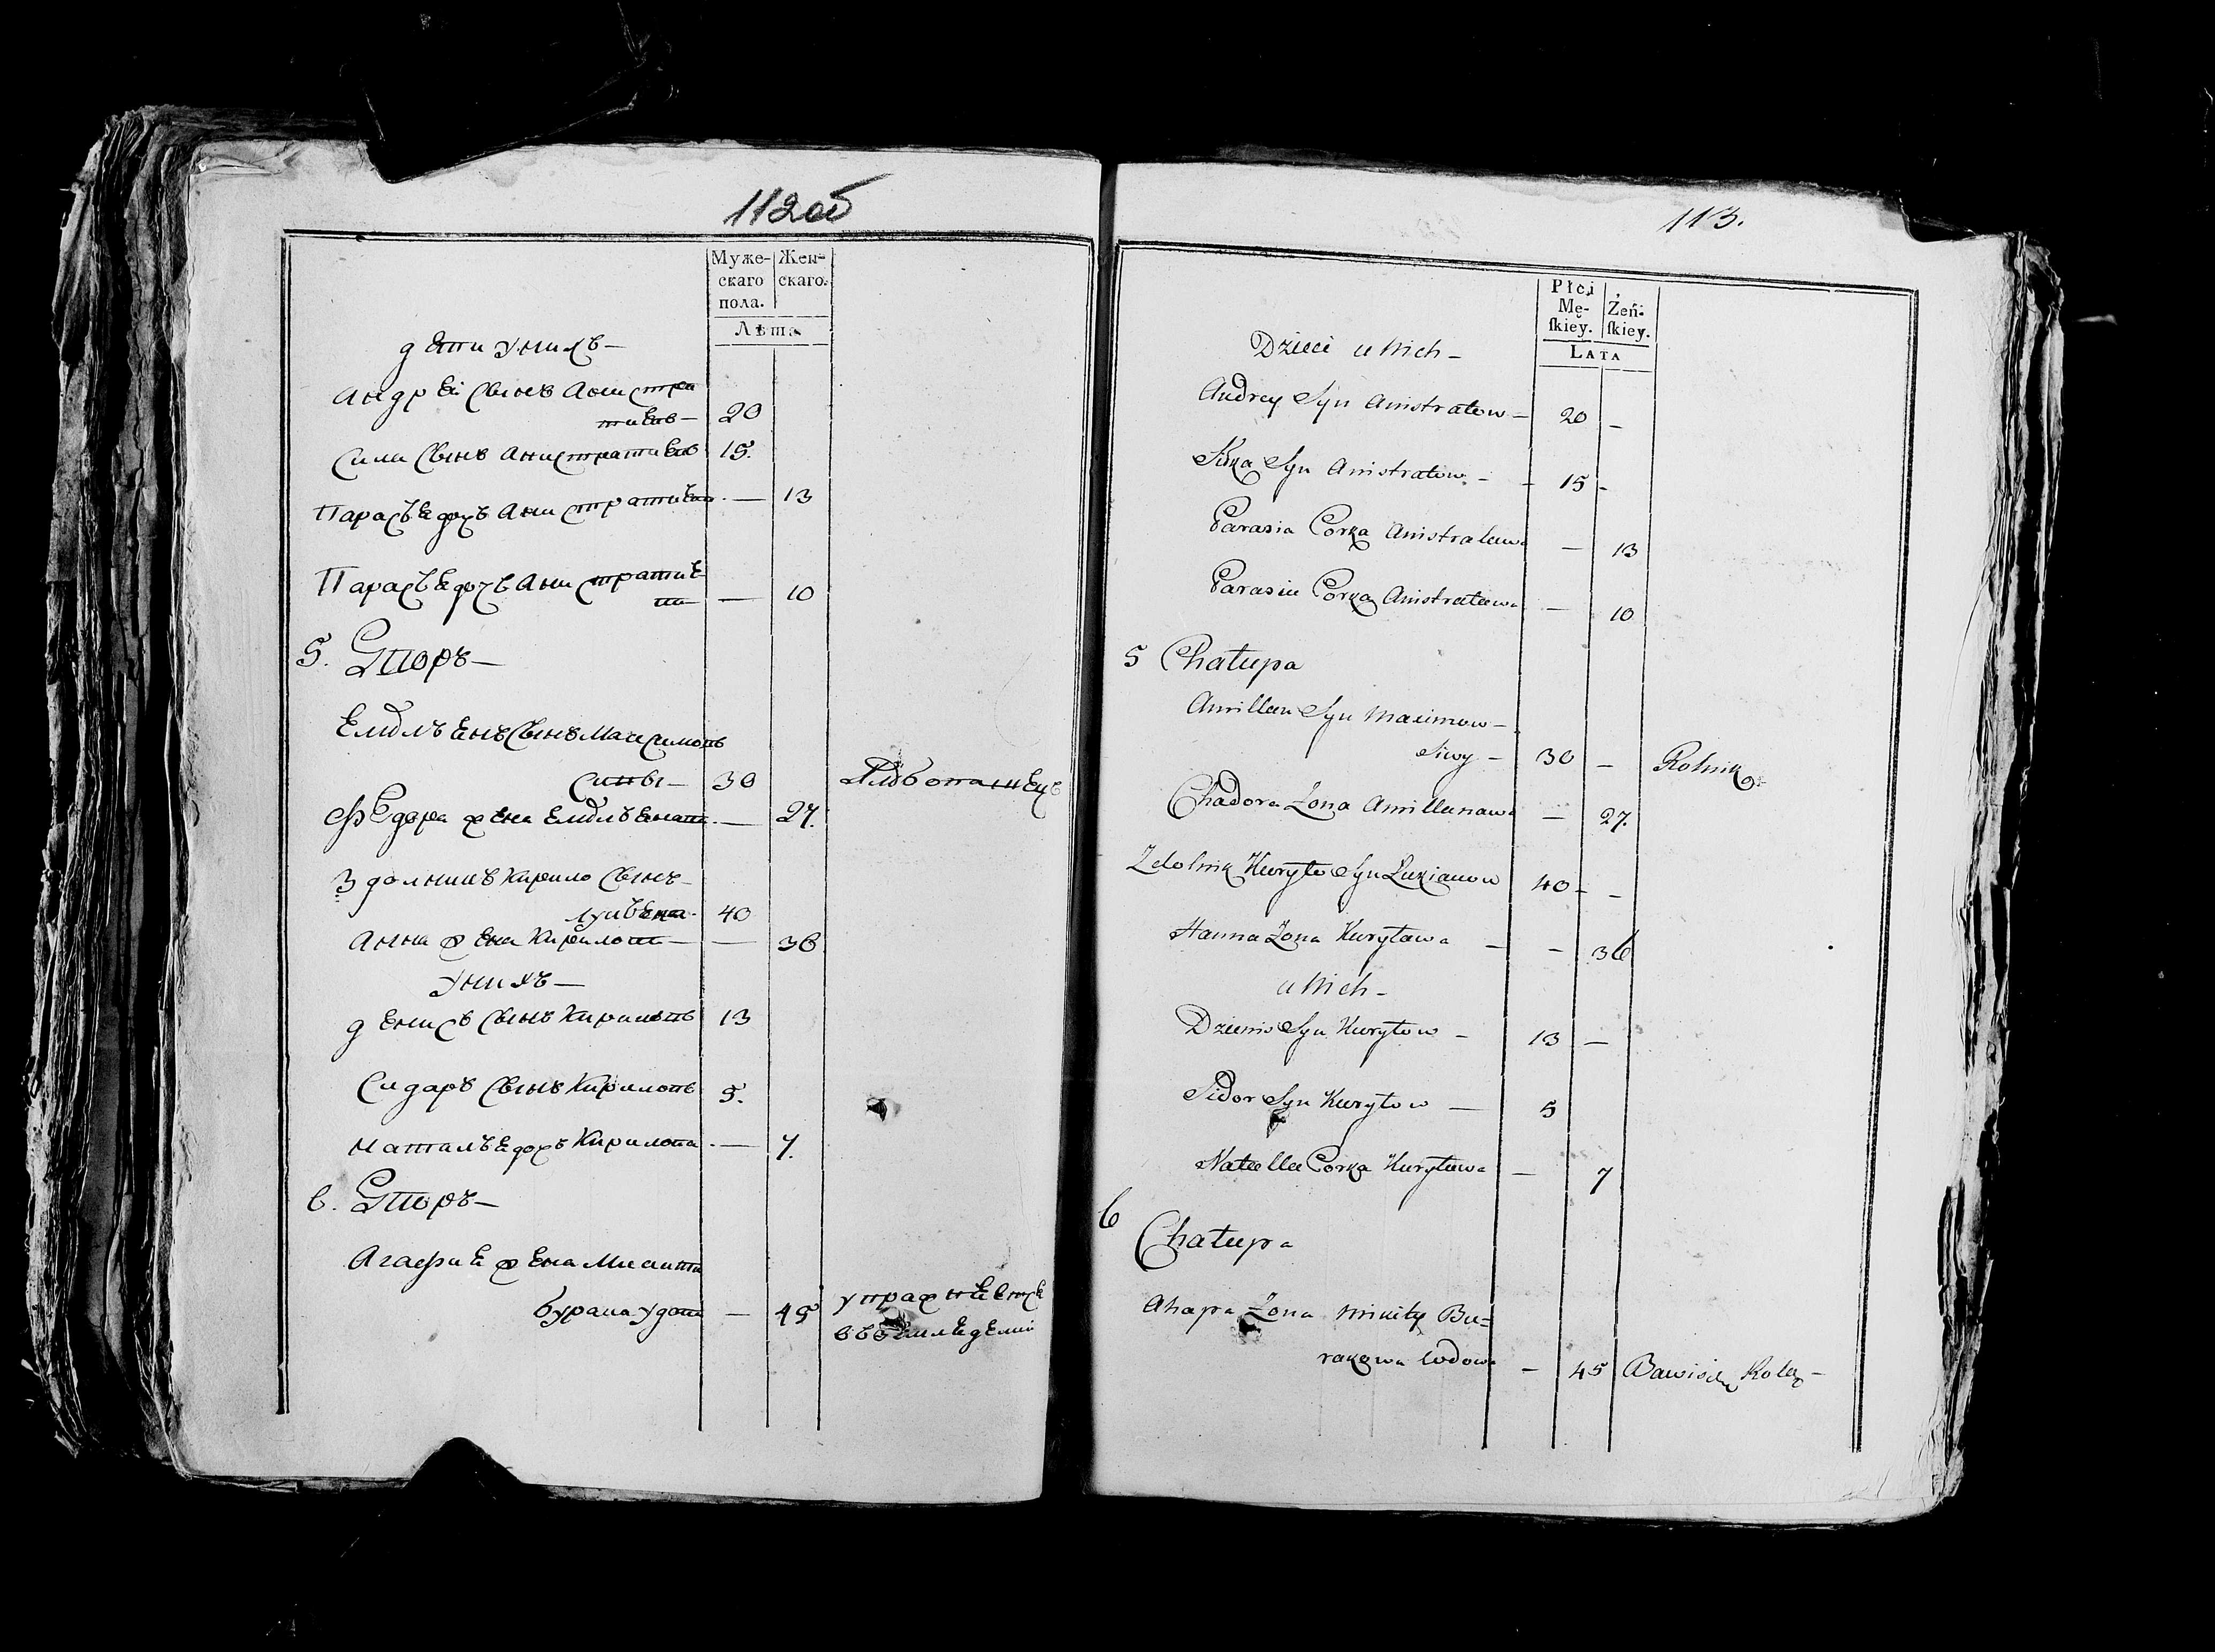 112об
Муже-
скаго
пола.
Жен-
скаго.
Лѣта
дети унихъ —
Андрей сынъ Анистра
товъ — 20
сынъ Анистратовъ 15.
дочъ Анистратова — 13
дочъ Анистрато
ва — 10
5. Дворъ —
сынъ Максимовъ
Сивы — 30 Хлѣбопашецъ
Федора жена — 27.
Здольникъ Кирило сынъ —
40
Анна жена Кирилова — — 36
унихъ —
Денисъ сынъ Кириловъ 13
Сидаръ сынъ Кириловъ 5.
дочъ Кирилова — 7.
6. Дворъ —
жена Микиты
Бурака удова — 45
113.
Płci
Mę-
ſkiey.
Żeń-
ſkiey.
LATA
Dzieci u Nich —
Andrey Syn Anistratow — 20 —
Syn Anistratow — - 15 -
Parasia Corka Anistratowa — 13
Parasia Corka Anistratowa — 10
5 Chałupa
Amillan Syn Maximow —
Siwy — 30 — Rolnik
Chadora Zona Amillanowa — 27.
Zdolnik Kuryło Syn Łukianow 40 - —
Hanna Zona Kuryłowa — — 36
u Nich —
Dzienis Syn Kuryłow — 13 —
Sidor Syn Kuryłow — 5
Natalla Corka Kuryłowa — 7
6
Chałupa
Ahapa Zona Mikity Bu=
rakowa wdowa — 45 Bawi się Rolą —